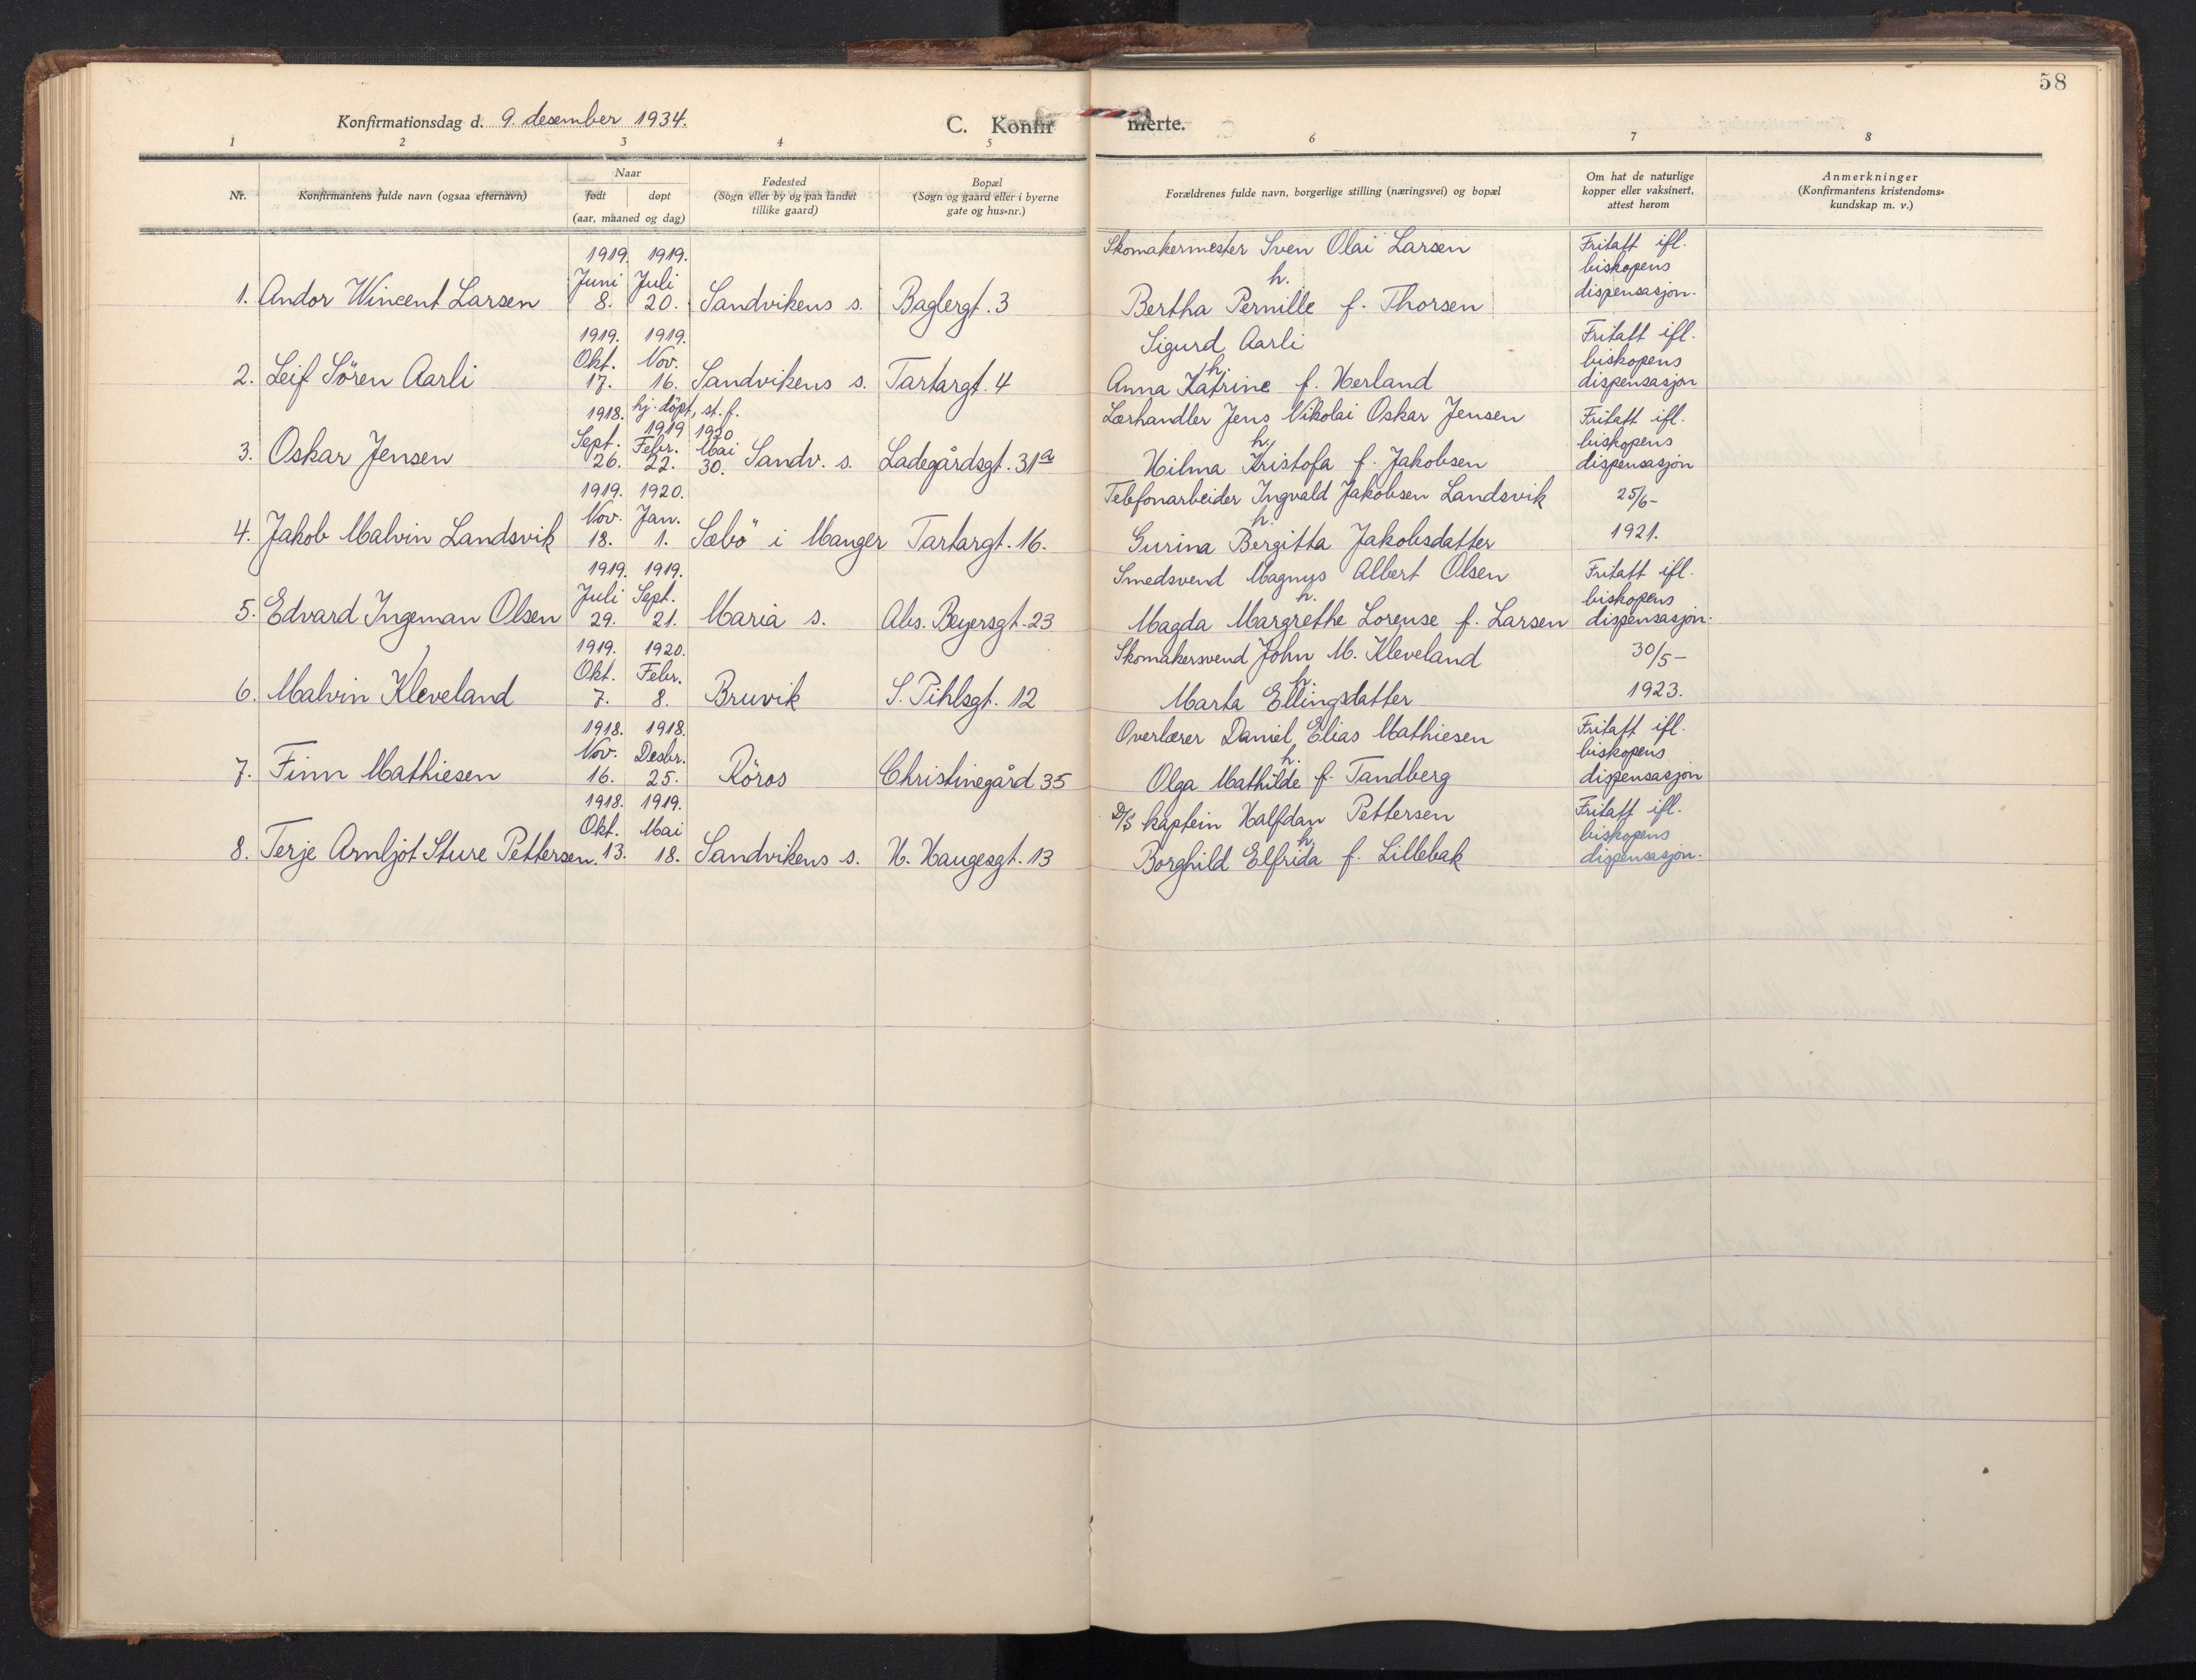 58
Konfirmationsdag d. 9. desember 1934.
C. Konfirmerte.
1 2 3 4 5 6 7 8
Nr.
Konfirmantens fulde navn (ogsaa efternavn)
Naar
født døpt
(aar, maaned og dag)
Fødested
(Sogn eller by og paa landet
tillike gaard)
Bopæl
(Sogn og gaard eller i byerne
gate og hus-nr.)
Forældrenes fulde navn, borgerlige stilling (næringsvei) og bopæl
Om hat de naturlige
kopper eller vaksinert,
attest herom
Anmerkninger
(Konfirmantens kristendoms-
kundskap m. v.)
1919. 1919. Skomakermester Sven Olai Larsen Fritatt ifl.
Juni Juli h. biskopens
1. Andor Wincent Larsen 8. 20. Sandvikens s. Baglergt. 3 Bertha Pernille f. Thorsen dispensasjon.
1919. 1919. Sigurd Aarli Fritatt ifl.
Okt. Nov. h. biskopens
2. Leif Sören Aarli 17. 16. Sandvikens s. Tartargt. 4 Anna Katrine f. Herland dispensasjon
1918. hj. döpt, st. f. Lærhandler Jens Nikolai Oskar Jensen Fritatt ifl.
Sept. 1919 Febr. 1920 Mai h. biskopens
3. Oskar Jensen 26. 22. 30. Sandv. s. Ladegårdsgt. 31a Hilma Kristofa f. Jakobsen dispensasjon
1919. 1920. Telefonarbeider Ingvald Jakobsen Landsvik 25/6-
Nov. Jan. h.
4. Jakob Malvin Landsvik 18. 1. Sæbö i Manger Tartargt. 16. Gurina Bergitta Jakobsdatter 1921.
1919. 1919. Smedsvend Magnus Albert Olsen Fritatt ifl.
Juli Sept. h. biskopens
5. Edvard Ingeman Olsen 29. 21. Maria s. Abs. Beyersgt. 23 Magda Margrethe Lorense f. Larsen dispensasjon.
1919. 1920. Skomakersvend John M. Kleveland 30/5-
Okt. Febr. h.
6. Malvin Kleveland 7. 8. Bruvik S. Pihlsgt. 12 Marta Ellingsdatter 1923.
1918. 1918. Overlærer Daniel Elias Mathiesen Fritatt ifl.
Nov. Desbr. h. biskopens
7. Finn Mathiesen 16. 25. Röros Christinegård 35 Olga Mathilde f. Tandberg dispensasjon
1918. 1919. D/S kaptein Halfdan Pettersen Fritatt ifl.
Okt. Mai h. biskopens
8. Terje Arnljot Sture Pettersen. 13. 18. Sandvikens s. H. Haugesgt. 13 Borghild Elfrida f. Lillebak dispensasjon.